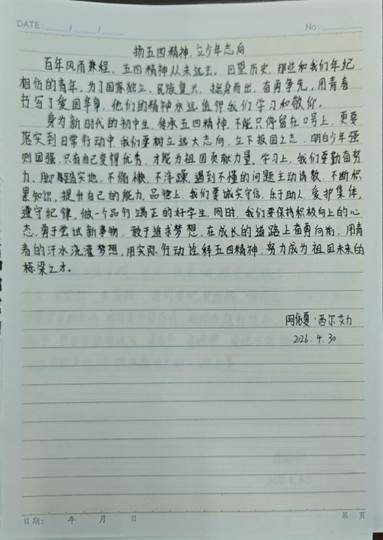 DATE: / /
No:
扬五四精神,立少年志向
百年风雨兼程,五四精神从未远去。回望历史,那些和我们年纪
相仿的青年,为了国家独立、民族复兴,挺身而出、奋勇争先,用青春
书写了爱国篇章,他们的精神永远值得我们学习和敬仰。
身为新时代的初中生,传承五四精神,不能只停留在口号上,更要
落实到日常行动中我们要树立远大志向,立下报国之志,明白少年强
则国强,只有自己变得优秀,才能为祖国贡献力量。学习上,我们要勤奋努
力、脚踏实地,不偷懒、不浮躁,遇到不懂的问题主动请教,不断积
累知识,提升自己的能力。品德上,我们要诚实守信、乐于助人、爱护集体、
遵守纪律,做一个品行端正的好学生。同时,我们要保持积极向上的心
态,勇于尝试新事物,敢于追求梦想,在成长的道路上奋勇向前,用青
春的汗水浇灌梦想,用实际行动诠释五四精神,努力成为祖国未来的
栋梁之才。
阿依夏·西尔艾力
2026.4.30
日期: 年 月 日
第 页